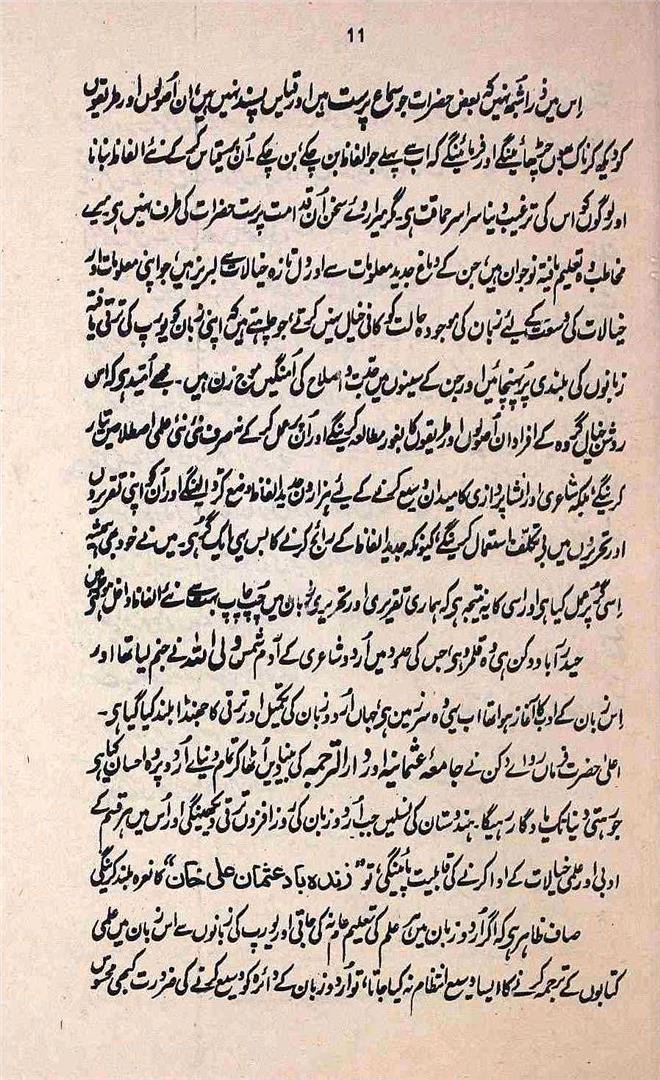 11
اس میں ذرا شبہ نہیں کہ بعض حضرات جو سماع پرست ہیں اور قیاس پسند نہیں ہیں، ان اُصولوں اور طریقوں
کو دیکھ کر ناک بھوں چڑھائینگے اور فرمائینگے کہ اب سے پہلے جو الفاظ بن چکے، بن چکے۔ اُن پر قیاس کر کے نئے الفاظ بنانا
اور لوگوں کو اس کی ترغیب دینا سراسر حماقت ہی۔ مگر میرا روئے سخن اُن قدامت پرست حضرات کی طرف نہیں ہی میرے
مخاطب وہ تعلیم یافتہ نوجوان ہیں، جن کے دماغ جدید معلومات سے اور دل تازہ خیالات سے لبریز ہیں، جو اپنی معلومات اور
خیالات کی وسعت کے لیے زبان کی موجودہ حالت کو کافی خیال نہیں کرتے، جو چاہتے ہیں کہ اپنی زبان کو یورپ کی ترقی یافتہ
زبانوں کی بلندی پر پہنچائیں اور جن کے سینوں میں جدت و اصلاح کی اُمنگیں موج زن ہیں۔ مجھے اُمید ہی کہ اس
روشن خیال گروہ کے افراد ان اُصولوں اور طریقوں کا بغور مطالعہ کرینگے اور اُن پر عمل کر کے نہ صرف نئی نئی علمی اصطلاحیں تیار
کرینگے، بلکہ شاعری اور انشا پردازی کا میدان وسیع کرنے کے لیے ہزاروں جدید الفاظ وضع کر ڈالینگے اور اُن کو اپنی تقریروں
اور تحریروں میں بے تکلف استعمال کرینگے، کیونکہ جدید الفاظ کے رائج کرنے کا بس یہی ایک گُر ہی۔ میں نے خود بھی ہمیشہ
اِسی گُر پر عمل کیا ہی اور اسی کا یہ نتیجہ ہی کہ ہماری تقریری اور تحریری زبان میں چپ چاپ بہت سے نئے الفاظ داخل ہو گئے ہیں
حیدرآباد دکن ہی وہ قلمرو ہی، جس کی حدود میں اُردو شاعری کے آدم شمس ولی اللہ نے جنم لیا تھا اور
اِس زبان کے ادب کا آغاز ہوا تھا، اب یہی وہ سرزمین ہی، جہاں اُردو زبان کی تکمیل اور ترقی کا جھنڈا بلند کیا گیا ہی۔
اعلیٰ حضرت فرماں رواے دکن نے جامعۂ عثمانیہ اور دارالترجمہ کی بنیادیں اُٹھا کر تمام دنیائے اُردو پر وہ احسان کیا ہی
جو رہتی دنیا تک یادگار رہیگا۔ ہندوستان کی نسلیں جب اُردو زبان کی روز افزوں ترقی دیکھینگی اور اُس میں ہر قسم کے
ادبی اور علمی خیالات کے ادا کرنے کی قابلیت پائینگی، تو "زندہ باد عثمان علی خان" کا نعرہ بلند کرینگی
صاف ظاہر ہی کہ اگر اُردو زبان میں ہر علم کی تعلیم عام نہ کی جاتی اور یورپ کی زبانوں سے اس زبان میں علمی
کتابوں کے ترجمہ کرنے کا ایسا وسیع انتظام نہ کیا جاتا، تو اُردو زبان کے دائرہ کو وسیع کرنے کی ضرورت کبھی محسوس